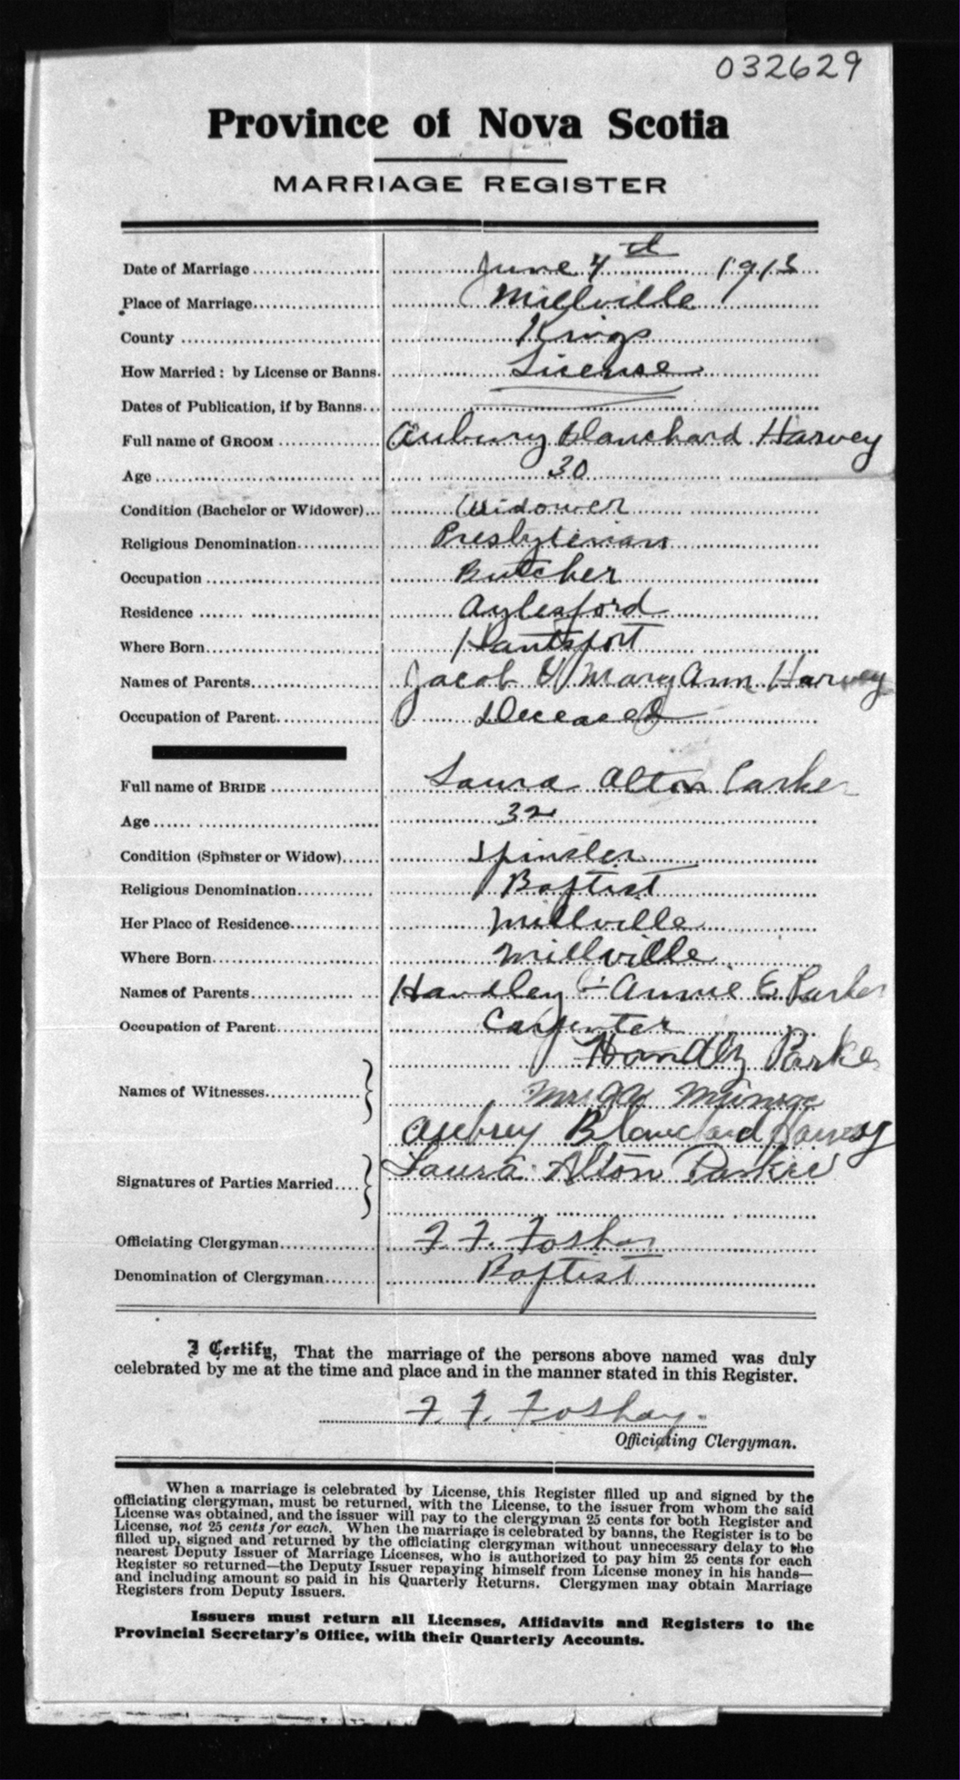 032629
Province of Nova Scotia
MARRIAGE REGISTER
Date of Marriage June 4th 1913
Place of Marriage Millville
County Kings
How Married: by License or Banns. License
Dates of Publication, if by Banns
Full name of GROOM Aubury Blanchard Harvey
Age 30
Condition (Bachelor or Widower) Widower
Religious Denomination Presbyterian
Occupation Butcher
Residence Aylesford
Where Born Hantsport
Names of Parents Jacob & Mary Ann Harvey
Occupation of Parent Deceased
Full name of BRIDE Laura Alton Parker
Age 32
Condition (Spinster or Widow) Spinster
Religious Denomination Baptist
Her Place of Residence Millville
Where Born Millville
Names of Parents Handley & Annie E Parker
Occupation of Parent Carpenter
Handly Parker
Names of Witnesses Mrs
Aubrey Blanchard Harvey
Signatures of Parties Married Laura Alton Parker
Officiating Clergyman F. F. Foshay
Denomination of Clergyman Baptist
I Certify, That the marriage of the persons above named was duly
celebrated by me at the time and place and in the manner stated in this Register.
F. F. Foshay.
Officiating Clergyman.
When a marriage is celebrated by License, this Register filled up and signed by the
officiating clergyman, must be returned, with the License, to the issuer from whom the said
License was obtained, and the issuer will pay to the clergyman 25 cents for both Register and
License, not 25 cents for each. When the marriage is celebrated by banns, the Register is to be
filled up, signed and returned by the officiating clergyman without unnecessary delay to the
nearest Deputy Issuer of Marriage Licenses, who is authorized to pay him 25 cents for each
Register so returned—the Deputy Issuer repaying himself from License money in his hands—
and including amount so paid in his Quarterly Returns. Clergymen may obtain Marriage
Registers from Deputy Issuers.
Issuers must return all Licenses, Affidavits and Registers to the
Provincial Secretary's Office, with their Quarterly Accounts.